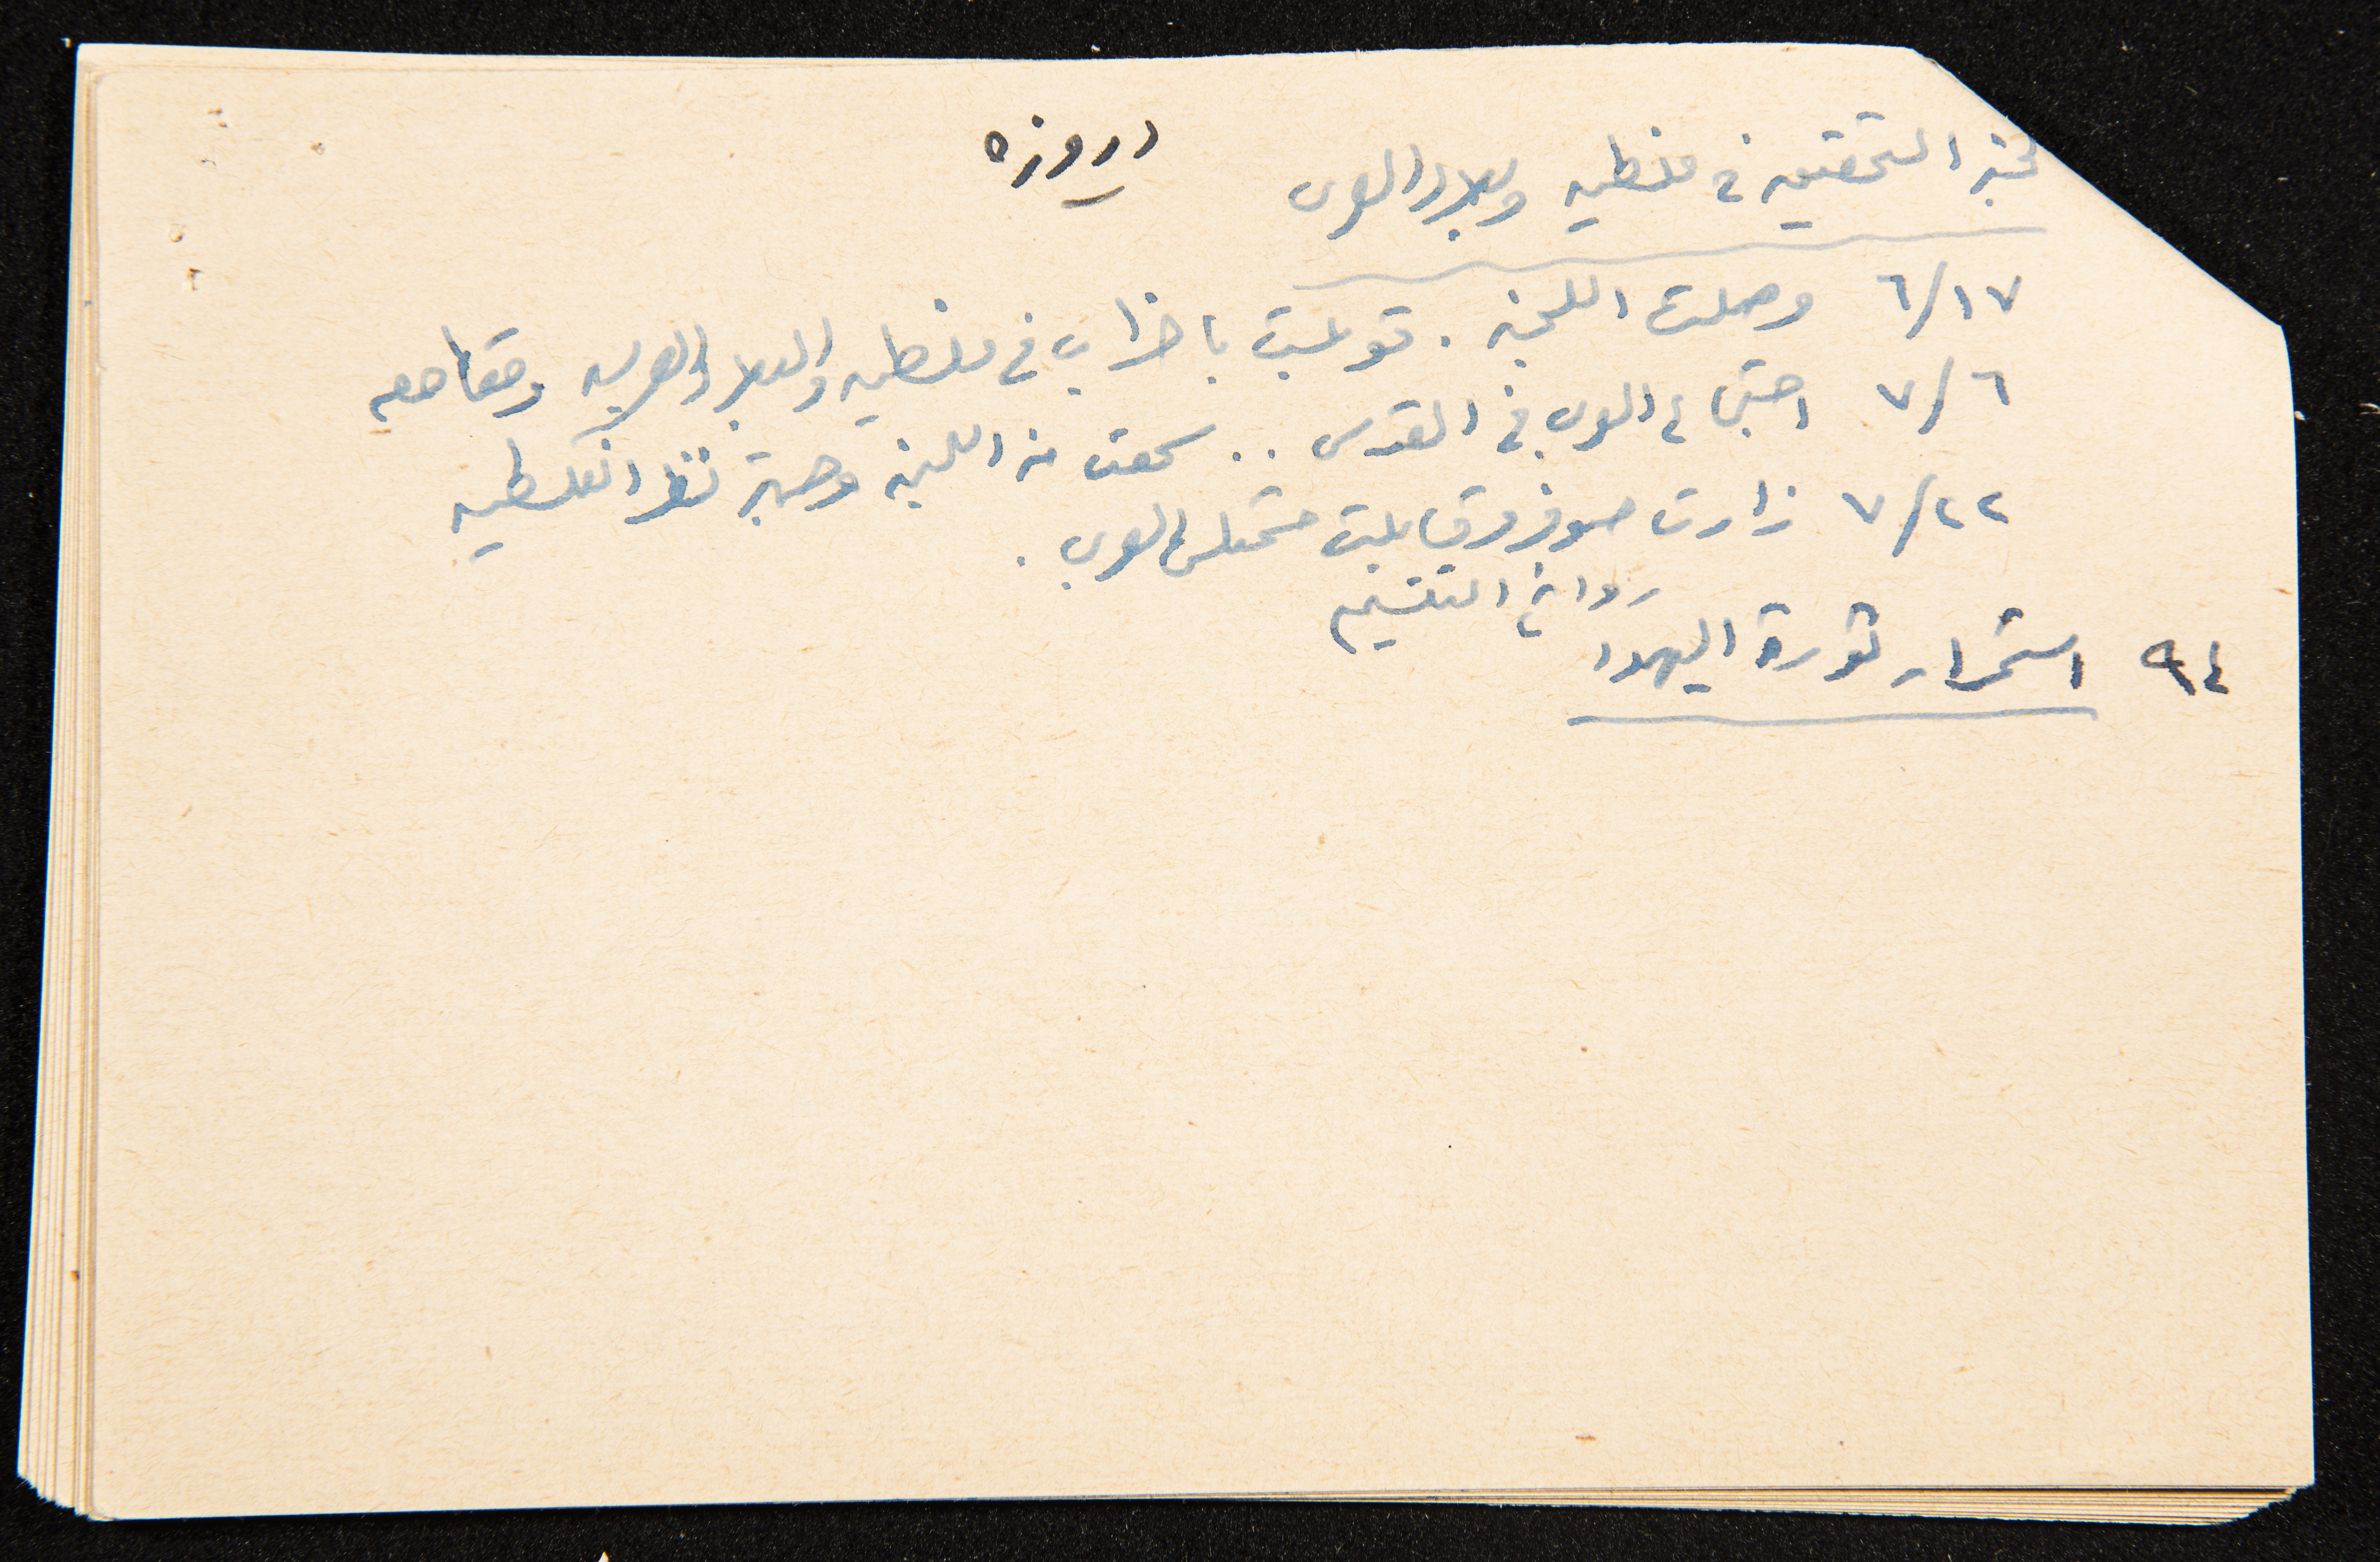 لجنة التحقيق في فلسطين وبلاد العرب دروزه
٦/١٧ وصلت اللجنة . قوبلت باضراب في فلسطين والبلاد العربيه ومقاطعه
٧/٦ اجتماع العرب في القدس .. سمعت منه اللجنة وجهة نظر الفلسطينيين
٧/٢٢ زارت صوفر وقابلت ممثلي العرب .
دوافع التقسيم
٩٤ استمرار ثورة اليهود